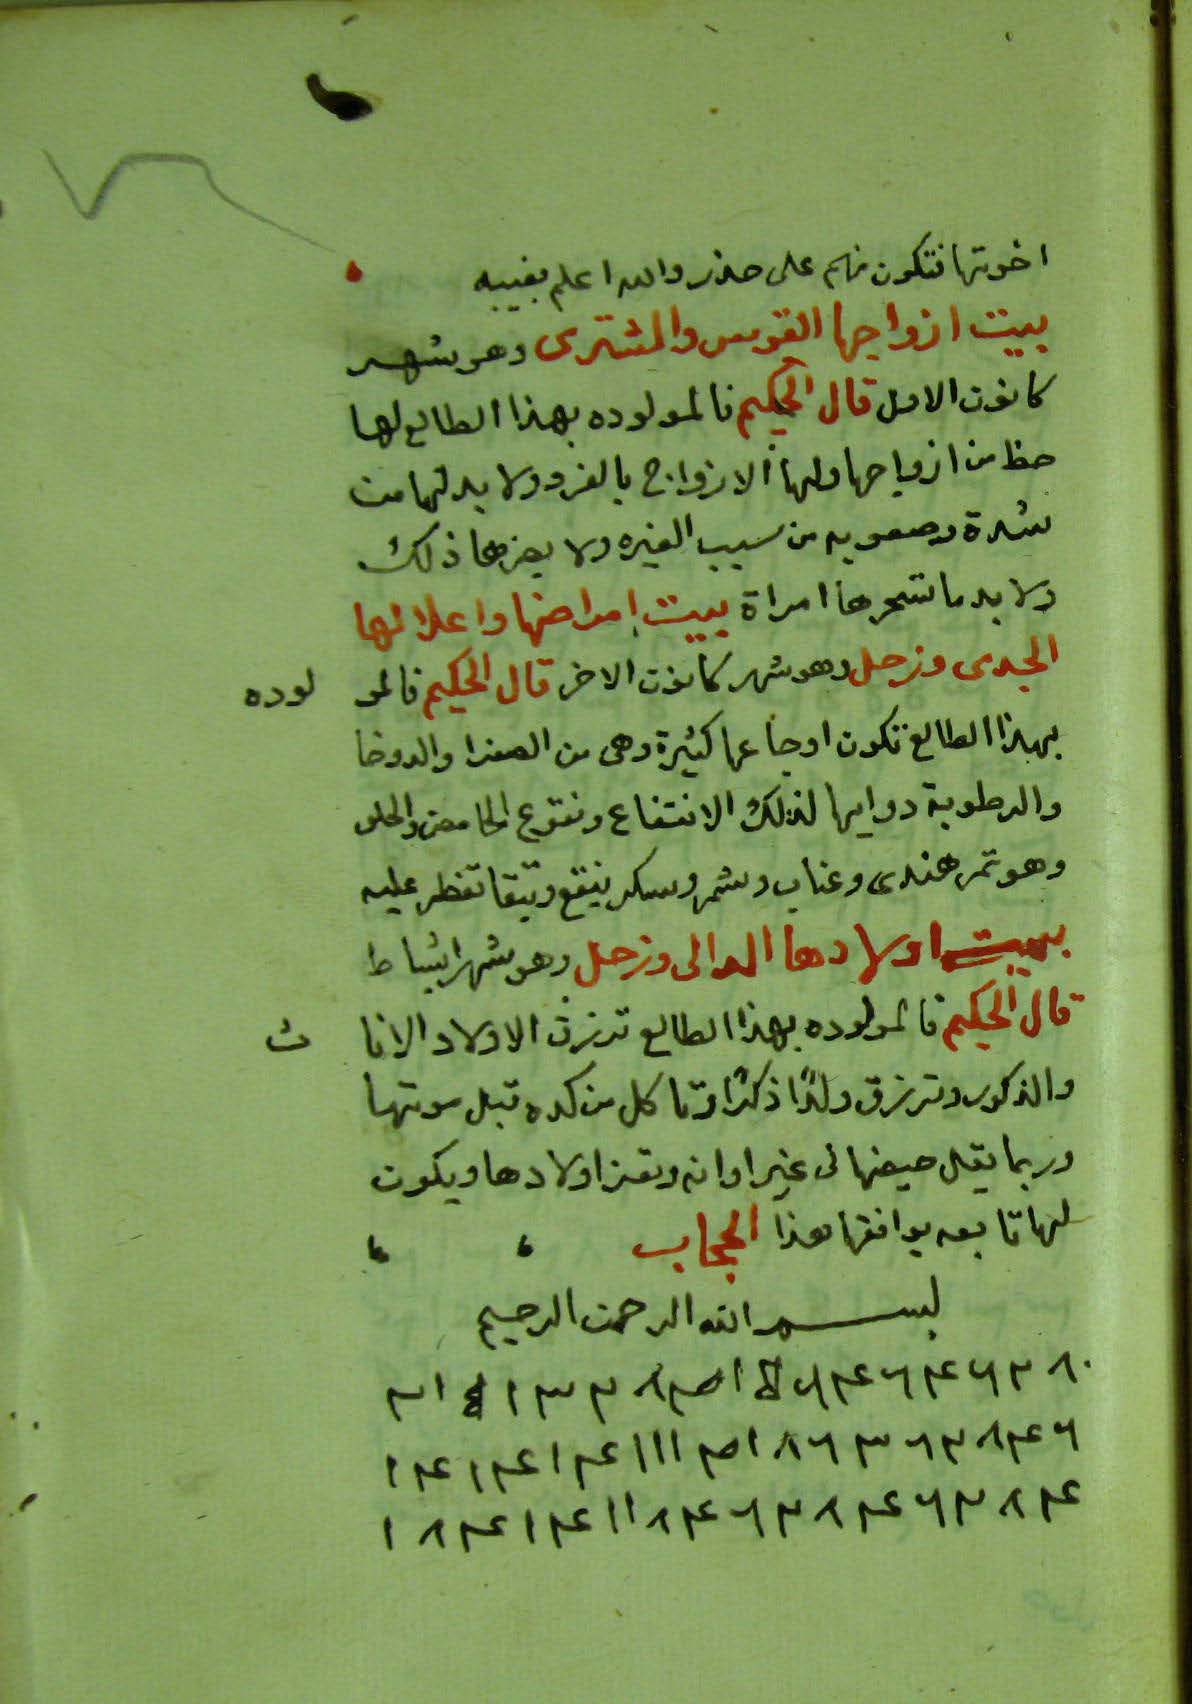 اخوتها فتكون منهم على حذر والله اعلم بغيبه
بيت ازواجها القوس والمشترى وهو شهر
كانون الاول قال الحكيم فالمولوده بهذا الطالع لها
حظ من ازواجها ولها الازواج بالفرد ولا بد لها من
شدة وصعوبه من سبب الغيره ولا يضرها ذلك
ولا بد ما تسحرها امراة بيت امراضها واعلالها
الجدى وزحل وهو شهر كانون الاخر قال الحكيم فالمو لوده
بهذا الطالع تكون اوجاعها كثيرة وهى من الصفرا والدوخا
والرطوبة دوايها لذلك الانتفاع ونقوع الحامض والحلو
وهو تمر هندى وعناب وشمر وسكر ينقع وتبقا تفطر عليه
بيت اولادها الدالى وزحل وهو شهر اشباط
قال الحكيم فالمولوده بهذا الطالع ترزق الاولاد الانا ث
والذكور وترزق ولدًا ذكرًا وتاكل من كده قبل موتها
وربما يقل حيضها فى غير اوانه وتعز اولادها ويكون
لها تابعه يوافقها هذا الحجاب
بسم الله الرحمن الرحيم